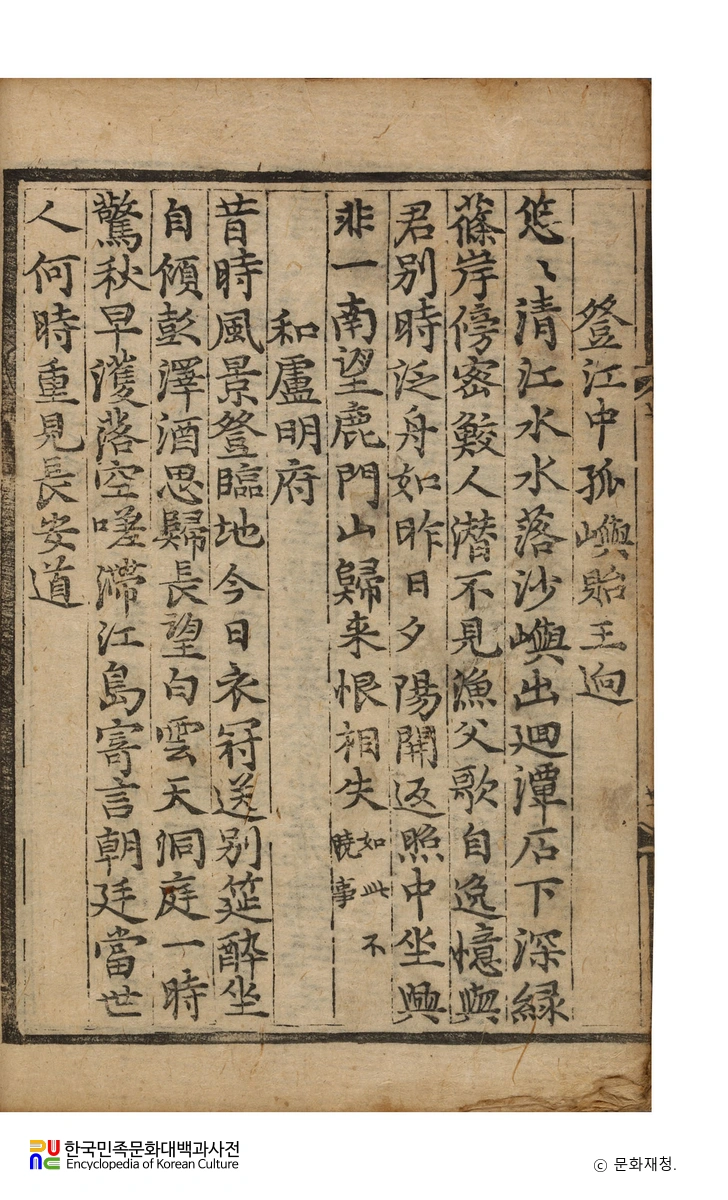 登江中孤嶼貽王逈
悠〻清江水水落沙嶼出迴潭石下深緑
篠岸傍宻鮫人潜不見漁父歌自逸憶與
君别時泛舟如昨日夕陽開返照中坐興
非一南望鹿門山歸来恨相失如此不曉事
和盧明府
昔時風景登臨地今日衣冠送别筵醉坐
自傾彭澤酒思歸長望白雲天洞庭一時
驚秋早濩落空嗟滯江島寄言朝廷當世
人何時重見長安道
한국민족문화대백과사전
Encyclopedia of Korean Culture
© 문화재청.